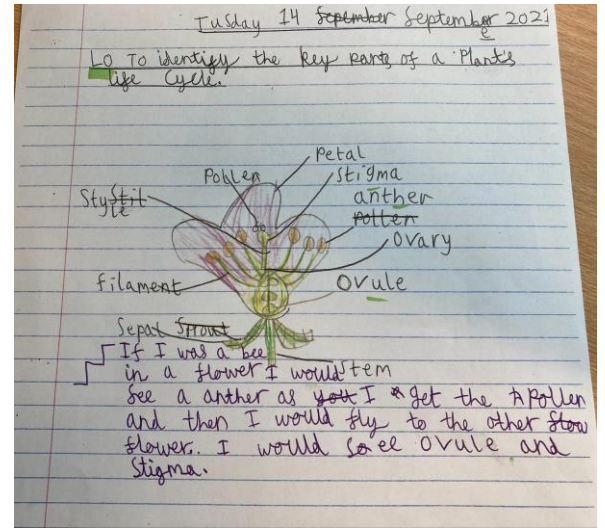 Tuesday 14 September September 2021
LO To identify the key parts of a Plant's
life Cycle.
Petal
Pollen
Stigma
Style
anther
pollen
Ovary
filament
Ovule
Sepal Sprout
Stem
If I was a bee
in a flower I would
see a anther as you I get the Pollen
and then I would fly to the other flow
flower. I would see Ovule and
Stigma.